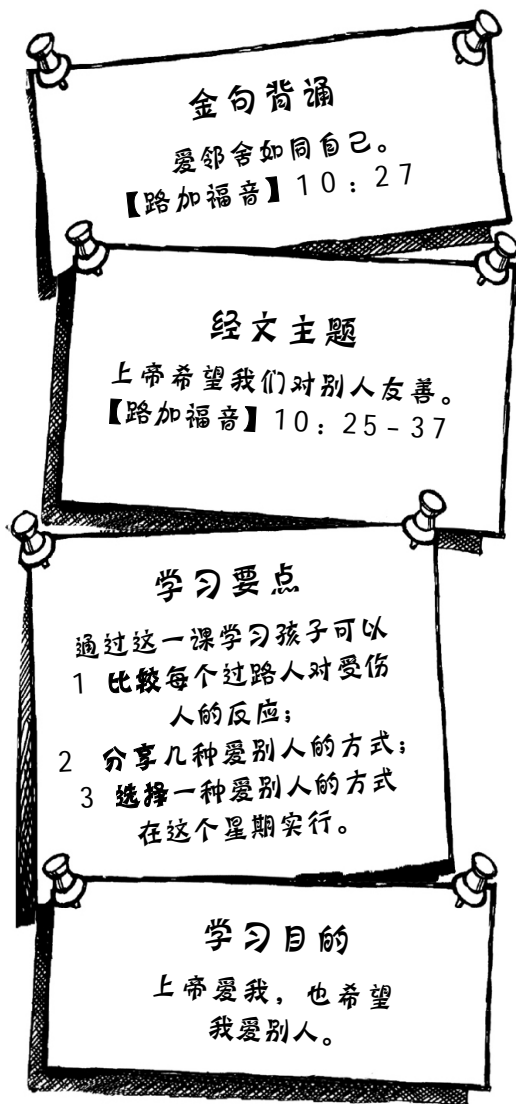 金句背诵
爱邻舍如同自己。
【路加福音】10：27
经文主题
上帝希望我们对别人友善。
【路加福音】10：25-37
学习要点
通过这一课学习孩子可以
1 比较每个过路人对受伤
人的反应；
2 分享几种爱别人的方式；
3 选择一种爱别人的方式
在这个星期实行。
学习目的
上帝爱我，也希望
我爱别人。